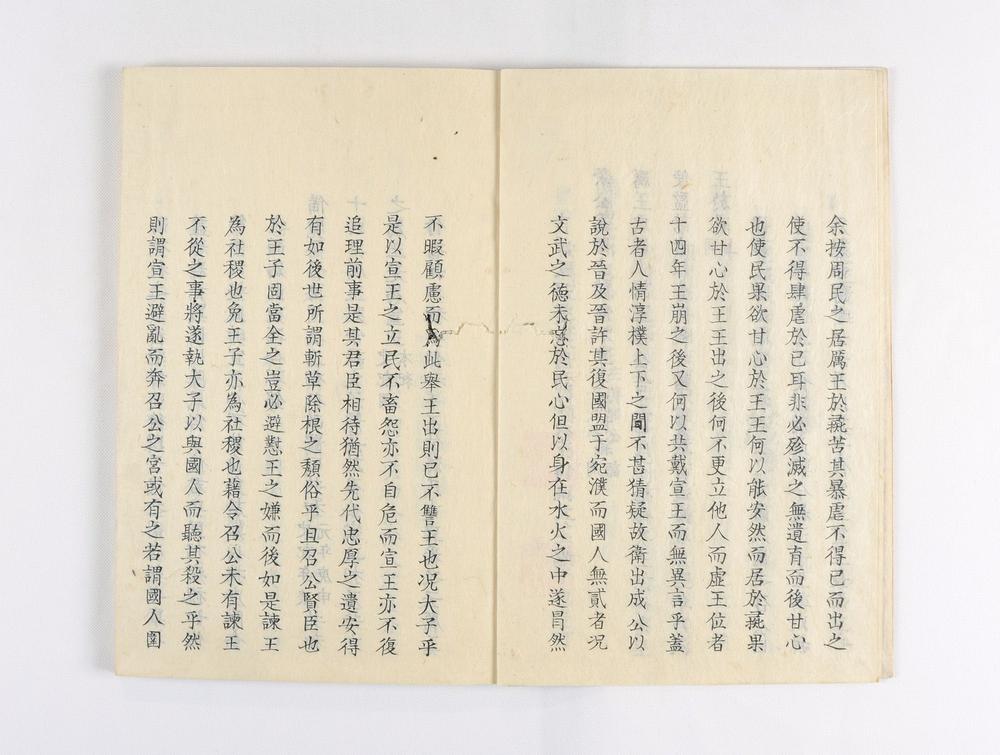 余按周民之居厲王於彘苦其暴虐不得已而出之
使不得肆虐於已耳非必殄滅之無遺育而後甘心
也使民果欲甘心於王王何以能安然而居於彘果
欲甘心於王王出之後何不更立他人而虛王位者
十四年王崩之後又何以共戴宣王而無異言乎蓋
古者人情淳樸上下之間不甚猜疑故衛出成公以
說於晉及晉許其復國盟于宛濮而國人無貳者况
文武之德未忘於民心但以身在水火之中遂冒然
不暇顧慮而為此舉王出則已不讐王也况大子乎
是以宣王之立民不畜怨亦不自危而宣王亦不復
追理前事是其君臣相待猶然先代忠厚之遺安得
有如後世所謂斬草除根之頹俗乎且召公賢臣也
於王子固當全之豈必避懟王之嫌而後如是諫王
為社稷也免王子亦為社稷也藉令召公未有諫王
不從之事將遂執大子以與國人而聽其殺之乎然
則謂宣王避亂而奔召公之宮或有之若謂國人圍